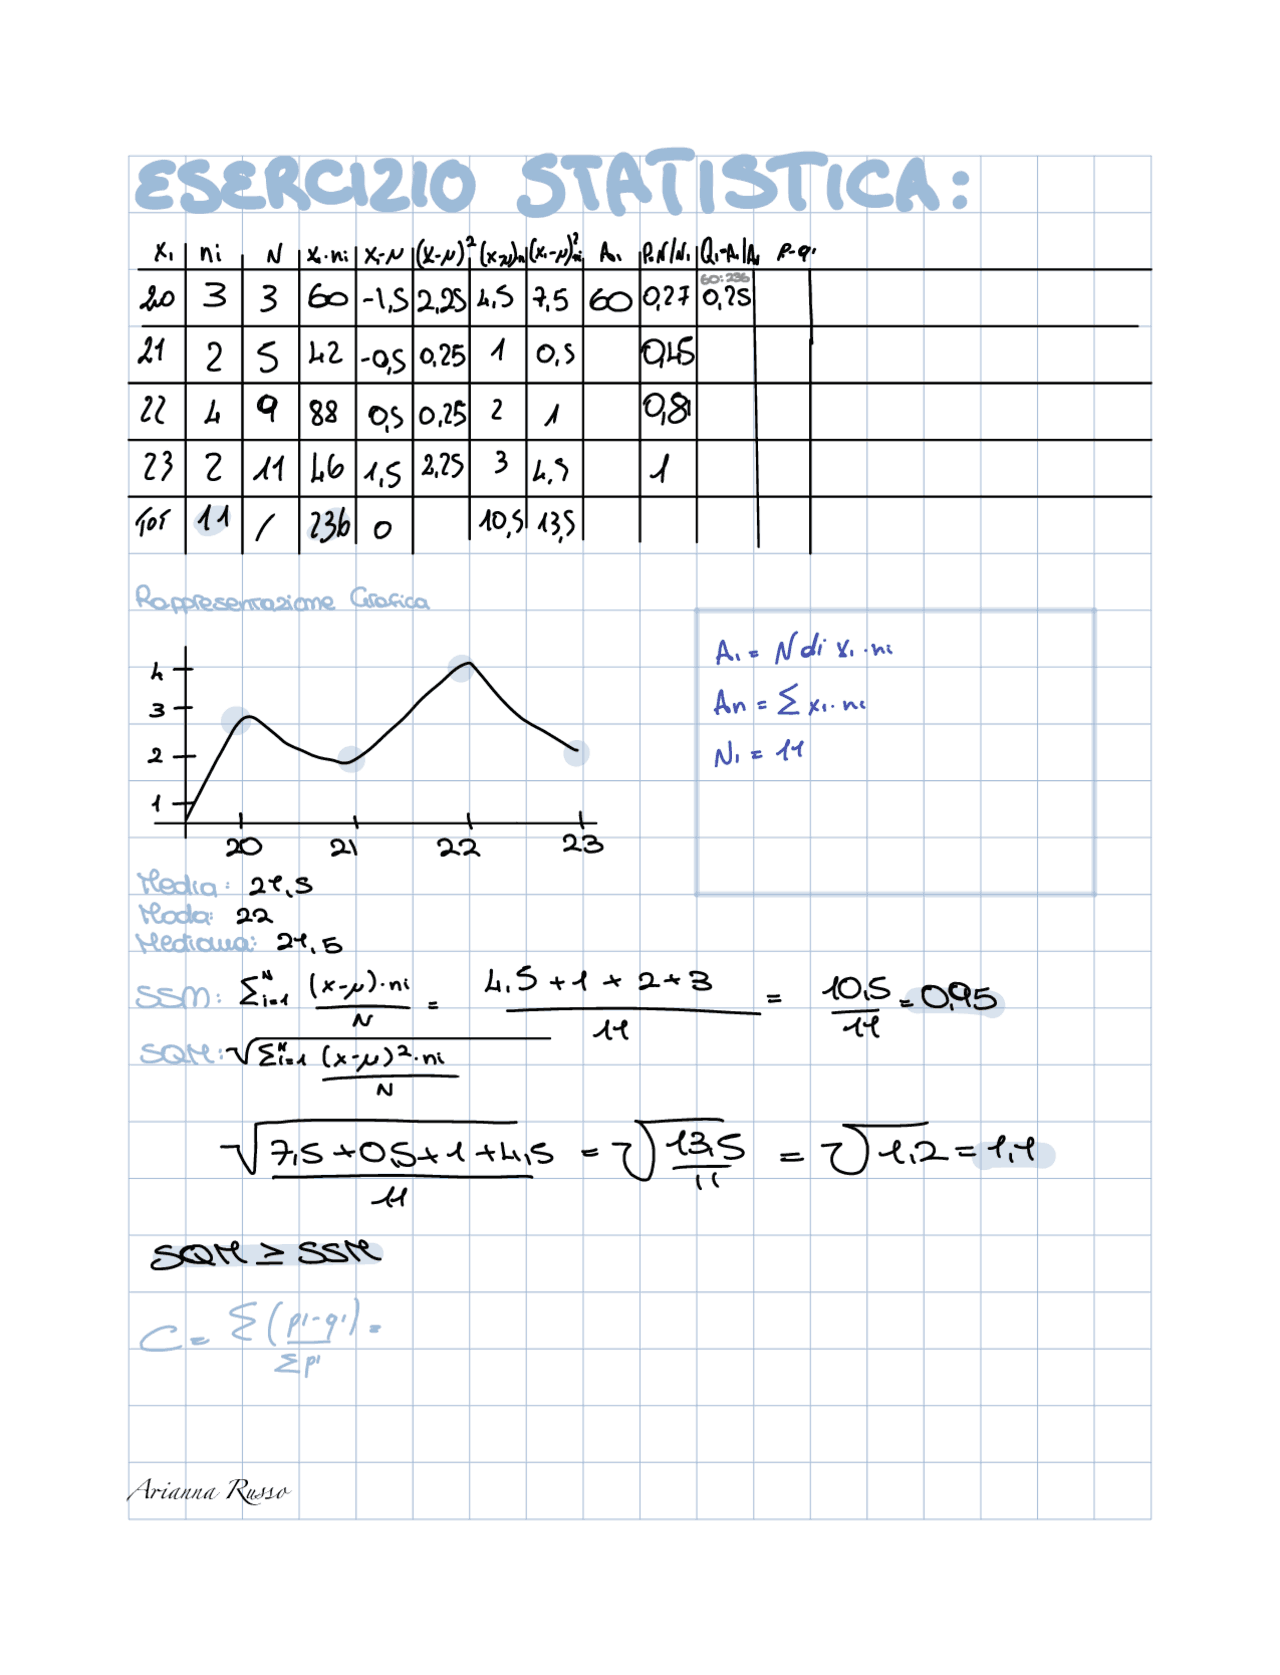 ESERCIZIO STATISTICA:
xi ni N xi·ni xi-μ (x-μ)² (x-μ)ni (xi-μ)²ni Ai Pi N/Ni Qi=Ai/An P-q'
20 3 3 60 -1,5 2,25 4,5 7,5 60 0,27 60:236 0,25
21 2 5 42 -0,5 0,25 1 0,5 0,45
22 4 9 88 0,5 0,25 2 1 0,81
23 2 11 46 1,5 2,25 3 4,5 1
TOT 11 / 236 0 10,5 13,5
Rappresentazione Grafica
4
3
2
1
20 21 22 23
Ai = N di xi·ni
An = Σ xi·ni
Ni = 11
Media: 21,5
Moda: 22
Mediana: 21,5
SSM: Σᴺi=1 (x-μ)·ni / N = 4,5+1+2+3 / 11 = 10,5 / 11 = 0,95
SQM: √Σᴺi=1 (x-μ)²·ni / N
√7,5+0,5+1+4,5 / 11 = √13,5 / 11 = √1,2 = 1,1
SQM ≥ SSM
C = Σ(pi-qi) / Σpi =
Arianna Russo